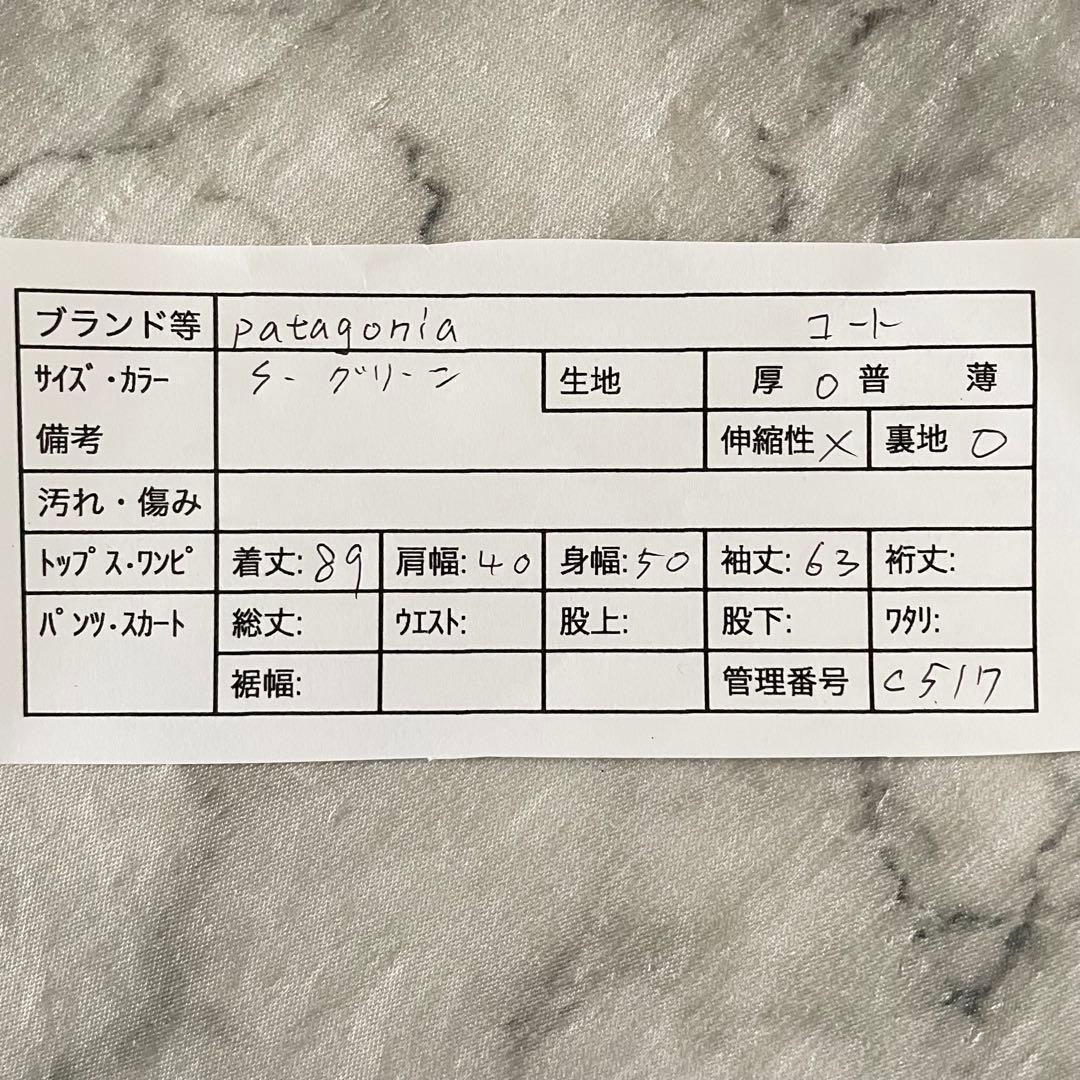 ブランド等 patagonia コート
サイズ・カラー S- グリーン 生地 厚 ○ 普 薄
備考 伸縮性 × 裏地 ○
汚れ・傷み
トップス・ワンピ 着丈: 89 肩幅: 40 身幅: 50 袖丈: 63 裄丈:
パンツ・スカート 総丈: ウエスト: 股上: 股下: ワタリ:
裾幅: 管理番号 C517